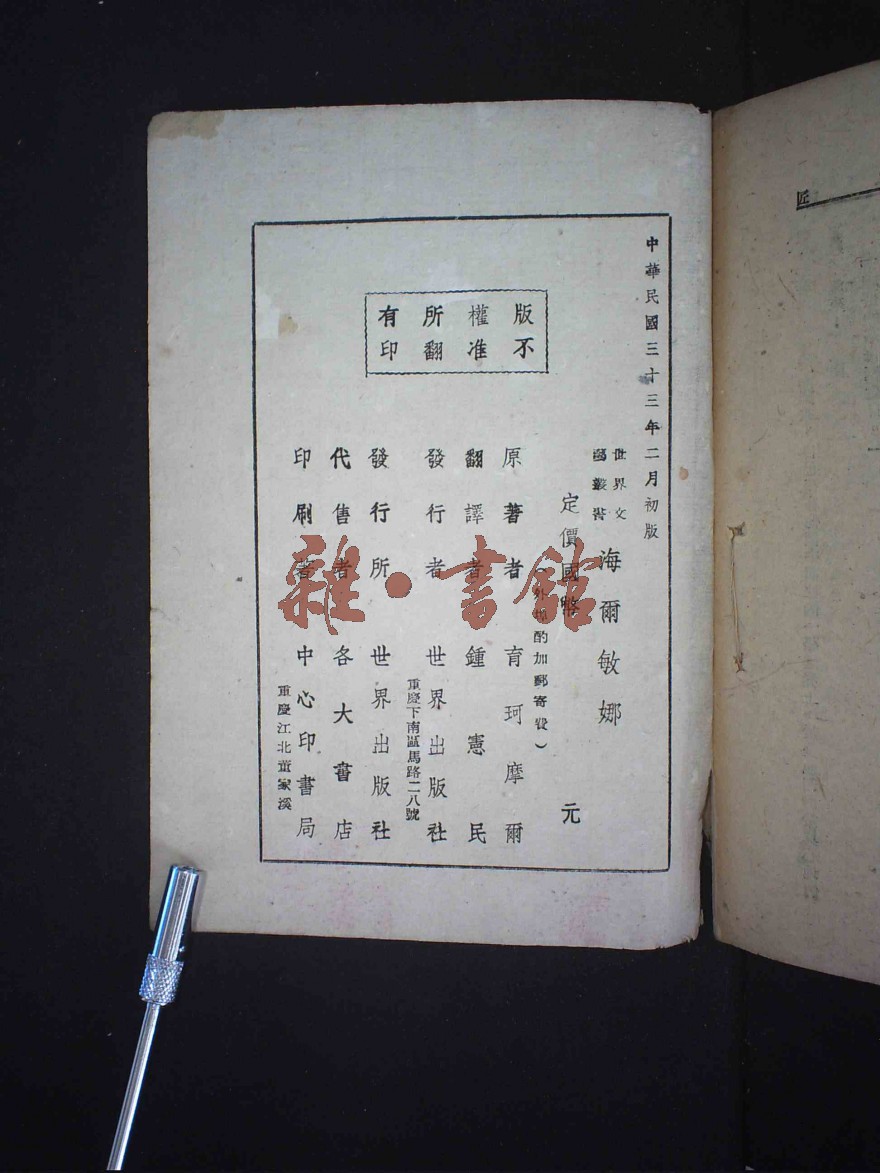 匠
中華民國三十三年二月初版
世界文
學叢書
海爾敏娜
定價國幣 元
（外埠酌加郵寄費）
版權所有
不准翻印
原著者 育珂摩爾
翻譯者 鍾憲民
發行者 世界出版社
重慶下南區馬路二八號
發行所 世界出版社
代售者 各大書店
印刷者 中心印書局
重慶江北董家溪
雜·書館